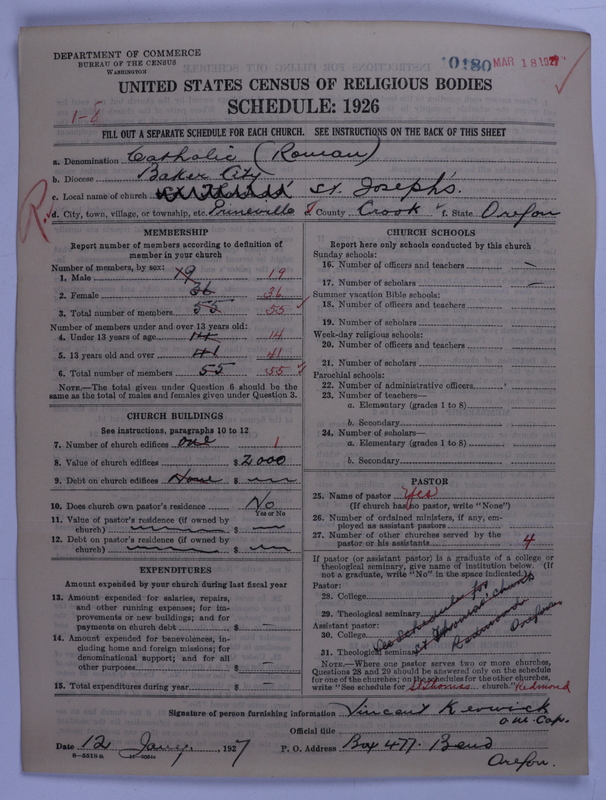 DEPARTMENT OF COMMERCE
BUREAU OF THE CENSUS
WASHINGTON
0180 MAR 18 1927
UNITED STATES CENSUS OF RELIGIOUS BODIES
SCHEDULE: 1926
1-8
FILL OUT A SEPARATE SCHEDULE FOR EACH CHURCH. SEE INSTRUCTIONS ON THE BACK OF THIS SHEET
a. Denomination Catholic (Roman)
b. Diocese Baker City
c. Local name of church St. Joseph's.
d. City, town, village, or township, etc. Prineville County Crook f. State Oregon
R.
MEMBERSHIP
Report number of members according to definition of
member in your church
Number of members, by sex:
1. Male 19 19
2. Female 36 36
3. Total number of members 55 55
Number of members under and over 13 years old:
4. Under 13 years of age 14 14
5. 13 years old and over 41 41
6. Total number of members 55 55
NOTE.—The total given under Question 6 should be the
same as the total of males and females given under Question 3.
CHURCH BUILDINGS
See instructions, paragraphs 10 to 12
7. Number of church edifices one 1
8. Value of church edifices $ 2000
9. Debt on church edifices None $
10. Does church own pastor's residence No
Yes or No
11. Value of pastor's residence (if owned by
church) $
12. Debt on pastor's residence (if owned by
church) $
EXPENDITURES
Amount expended by your church during last fiscal year
13. Amount expended for salaries, repairs,
and other running expenses; for im-
provements or new buildings; and for
payments on church debt $ —
14. Amount expended for benevolences, in-
cluding home and foreign missions; for
denominational support; and for all
other purposes $ —
15. Total expenditures during year $
CHURCH SCHOOLS
Report here only schools conducted by this church
Sunday schools:
16. Number of officers and teachers —
17. Number of scholars —
Summer vacation Bible schools:
18. Number of officers and teachers
19. Number of scholars
Week-day religious schools:
20. Number of officers and teachers
21. Number of scholars
Parochial schools:
22. Number of administrative officers
23. Number of teachers—
a. Elementary (grades 1 to 8)
b. Secondary
24. Number of scholars—
a. Elementary (grades 1 to 8)
b. Secondary
PASTOR
25. Name of pastor Yes
(If church has no pastor, write "None")
26. Number of ordained ministers, if any, em-
ployed as assistant pastors
27. Number of other churches served by the
pastor or his assistants 4
If pastor (or assistant pastor) is a graduate of a college or
theological seminary, give name of institution below. (If
not a graduate, write "No" in the space indicated.)
Pastor:
28. College
29. Theological seminary
Assistant pastor:
30. College
31. Theological seminary
See Schedule for
St Thomas' Church
Redmond
Oregon
NOTE.—Where one pastor serves two or more churches,
Questions 28 and 29 should be answered only on the schedule
for one of the churches; on the schedules for the other churches,
write "See schedule for St Thomas church." Redmond
Signature of person furnishing information Vincent Kerwick
O M Cap.
Official title
Date 12 Jany. 1927 P. O. Address Box 477. Bend
Oregon.